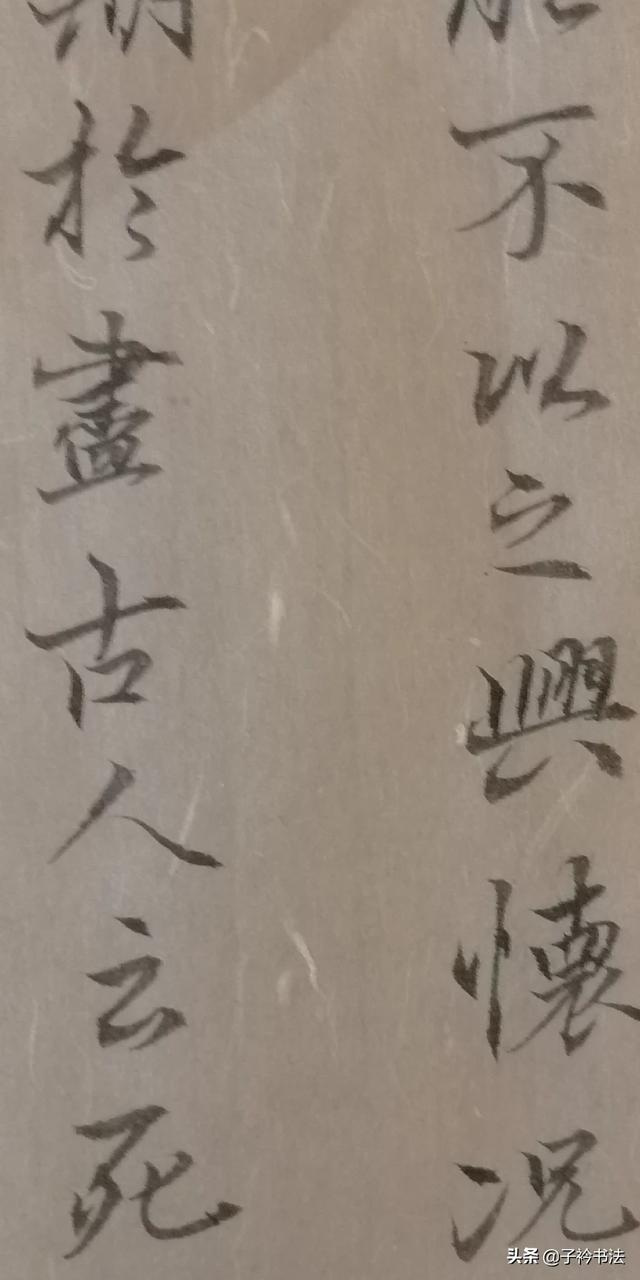 能不以之興懷况
期於盡古人云死
头条 @子衿书法